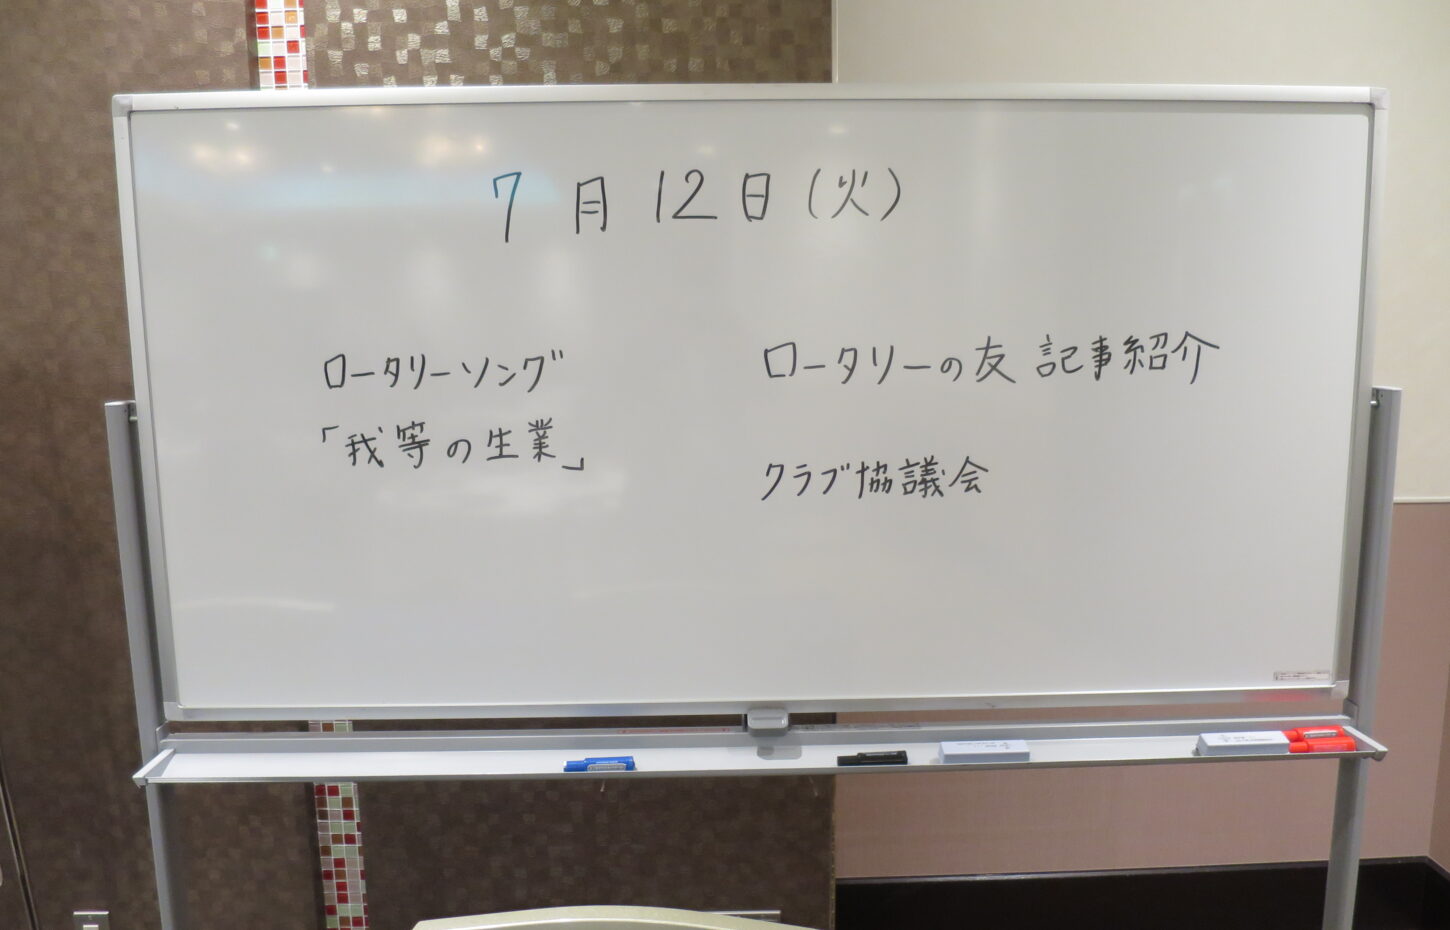 7月12日(火)
ロータリーソング
「我等の生業」
ロータリーの友 記事紹介
クラブ協議会